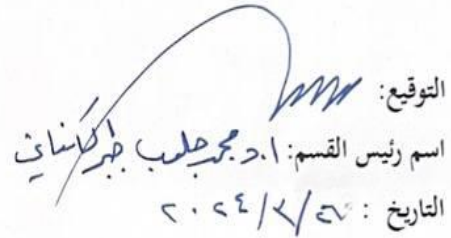 التوقيع:
اسم رئيس القسم: أ.د محمد جلوب جبر الكناني
التاريخ : ٢٠٢٤/٢/٢٧